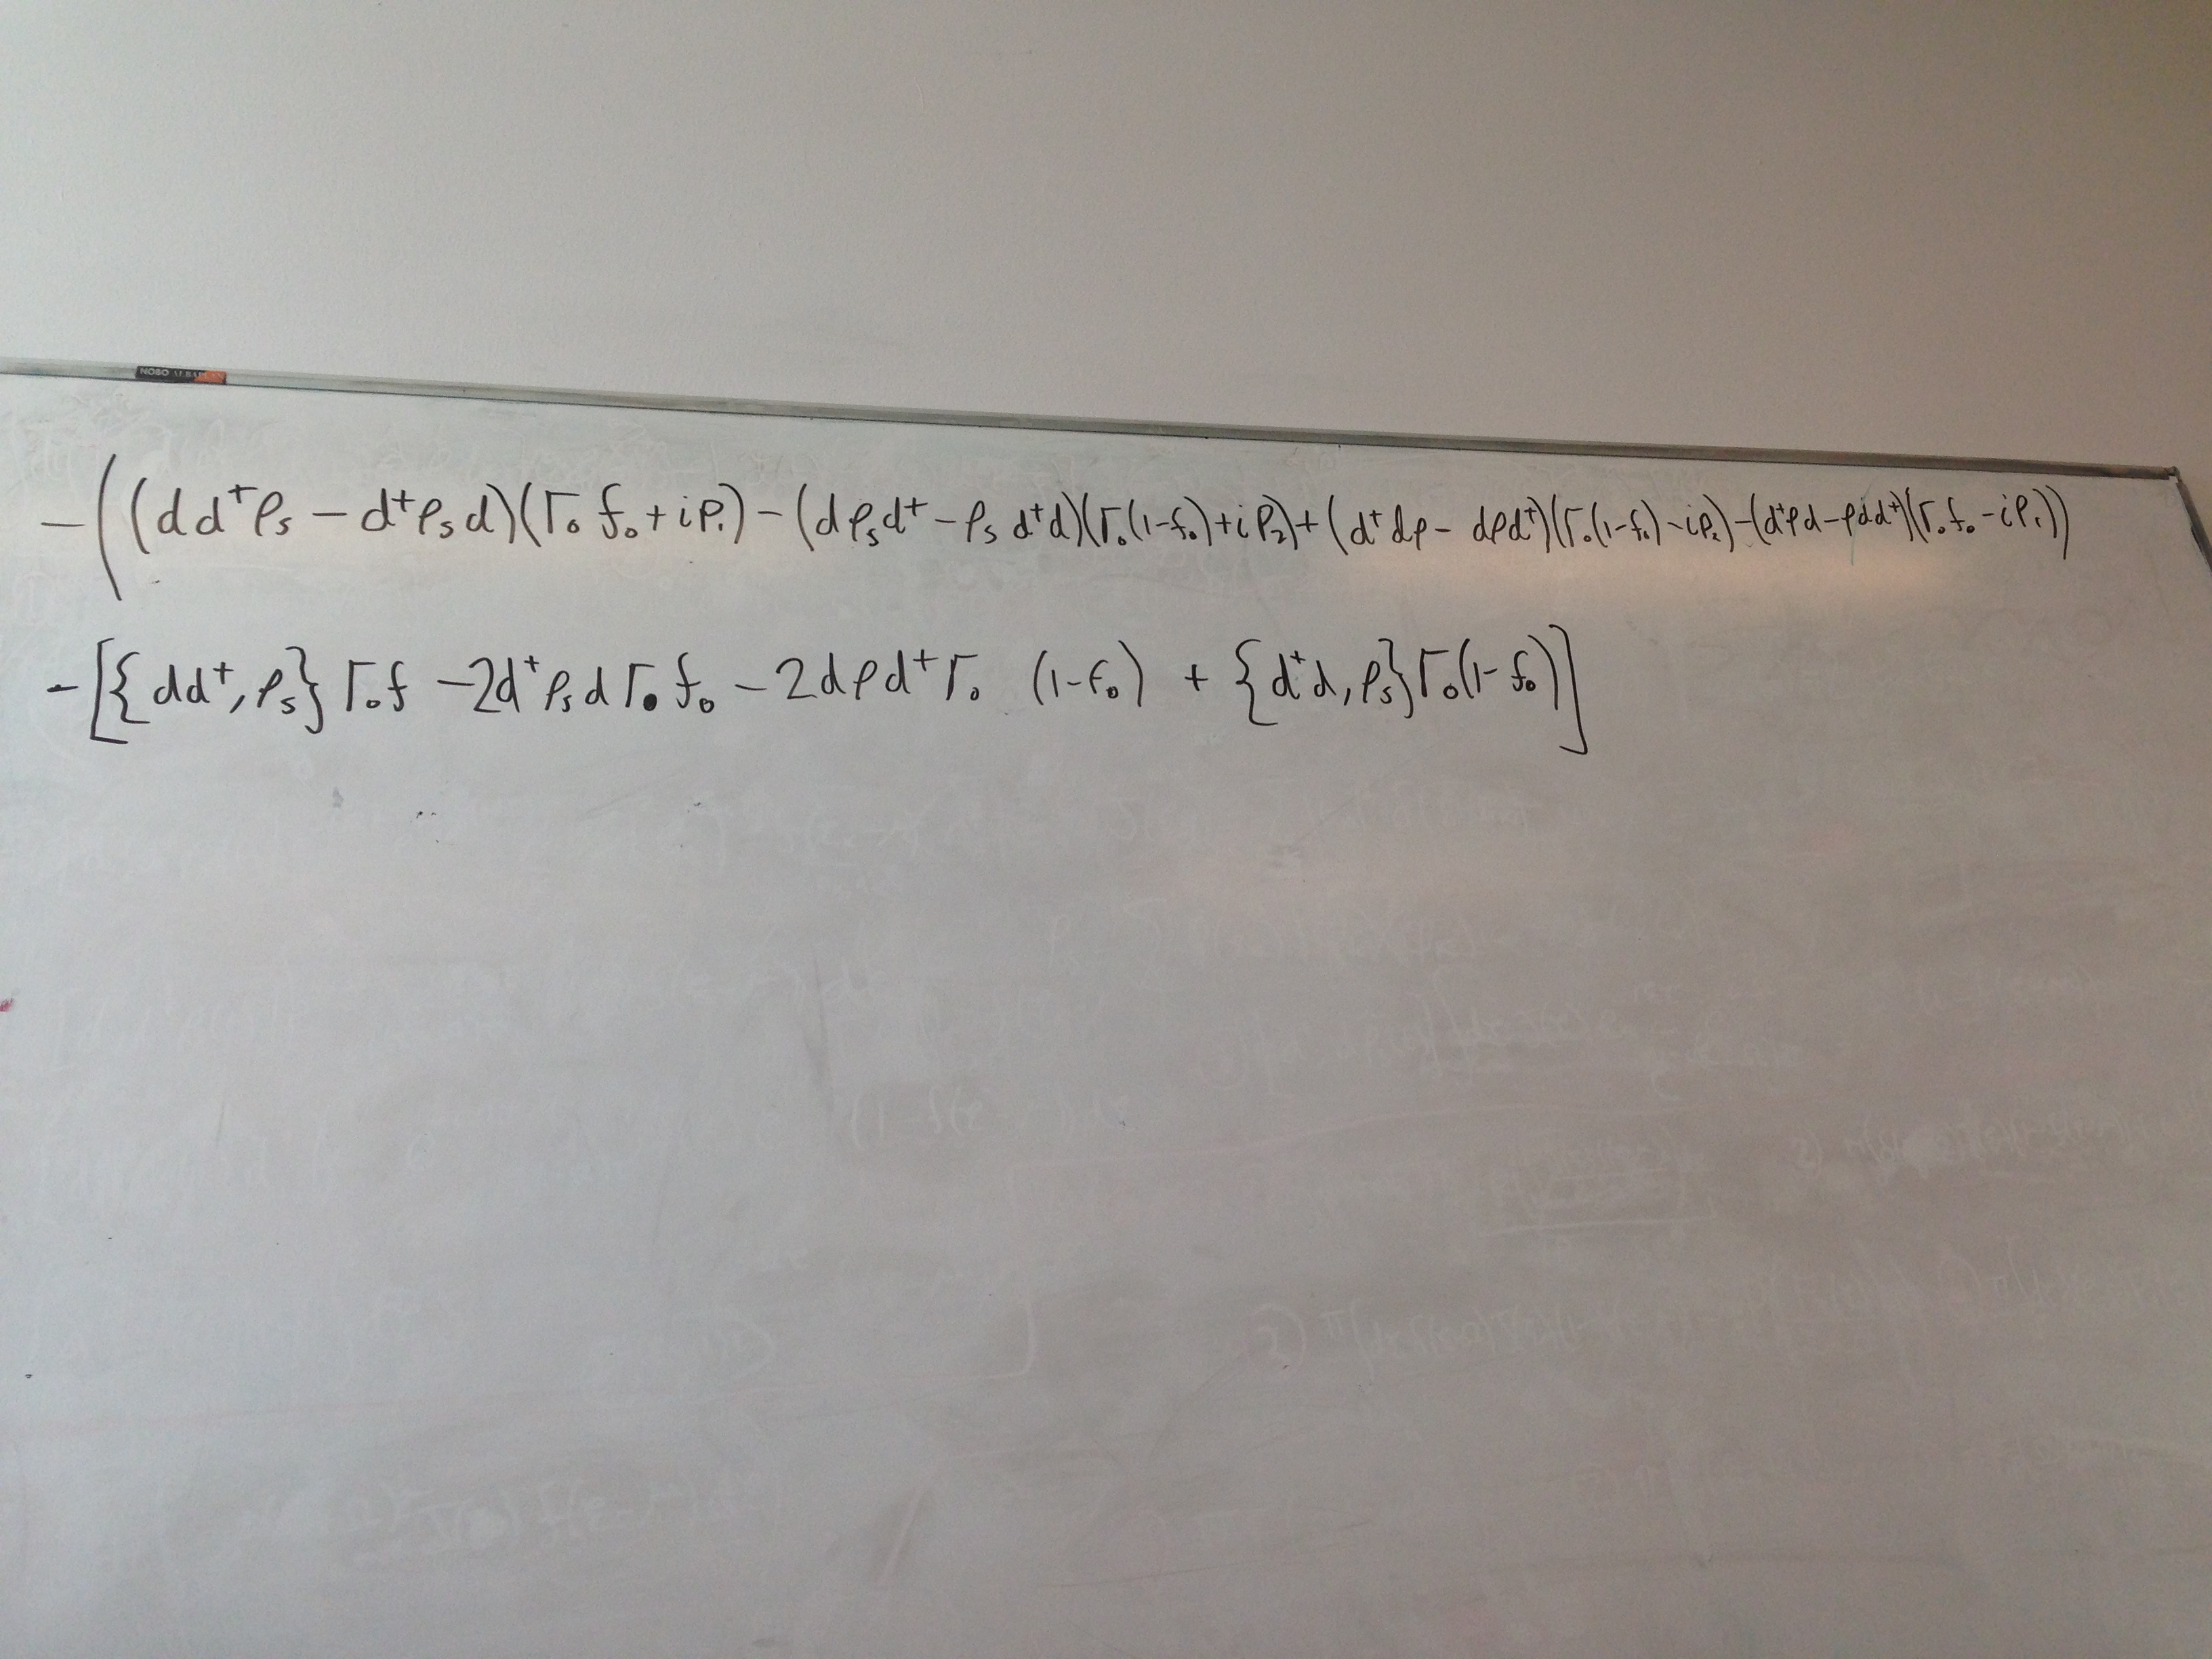 NOBO
−((dd⁺ρₛ − d⁺ρₛd)(Γ₀f₀ + iP₁) − (dρₛd⁺ − ρₛd⁺d)(Γ₀(1−f₀) + iP₂) + (d⁺dρ − dρd⁺)(Γ₀(1−f₀) − iP₂) − (d⁺ρd − ρdd⁺)(Γ₀f₀ − iP₁))
−[{dd⁺, ρₛ}Γ₀f − 2d⁺ρₛdΓ₀f₀ − 2dρd⁺Γ₀ (1−f₀) + {d⁺d, ρₛ}Γ₀(1−f₀)]